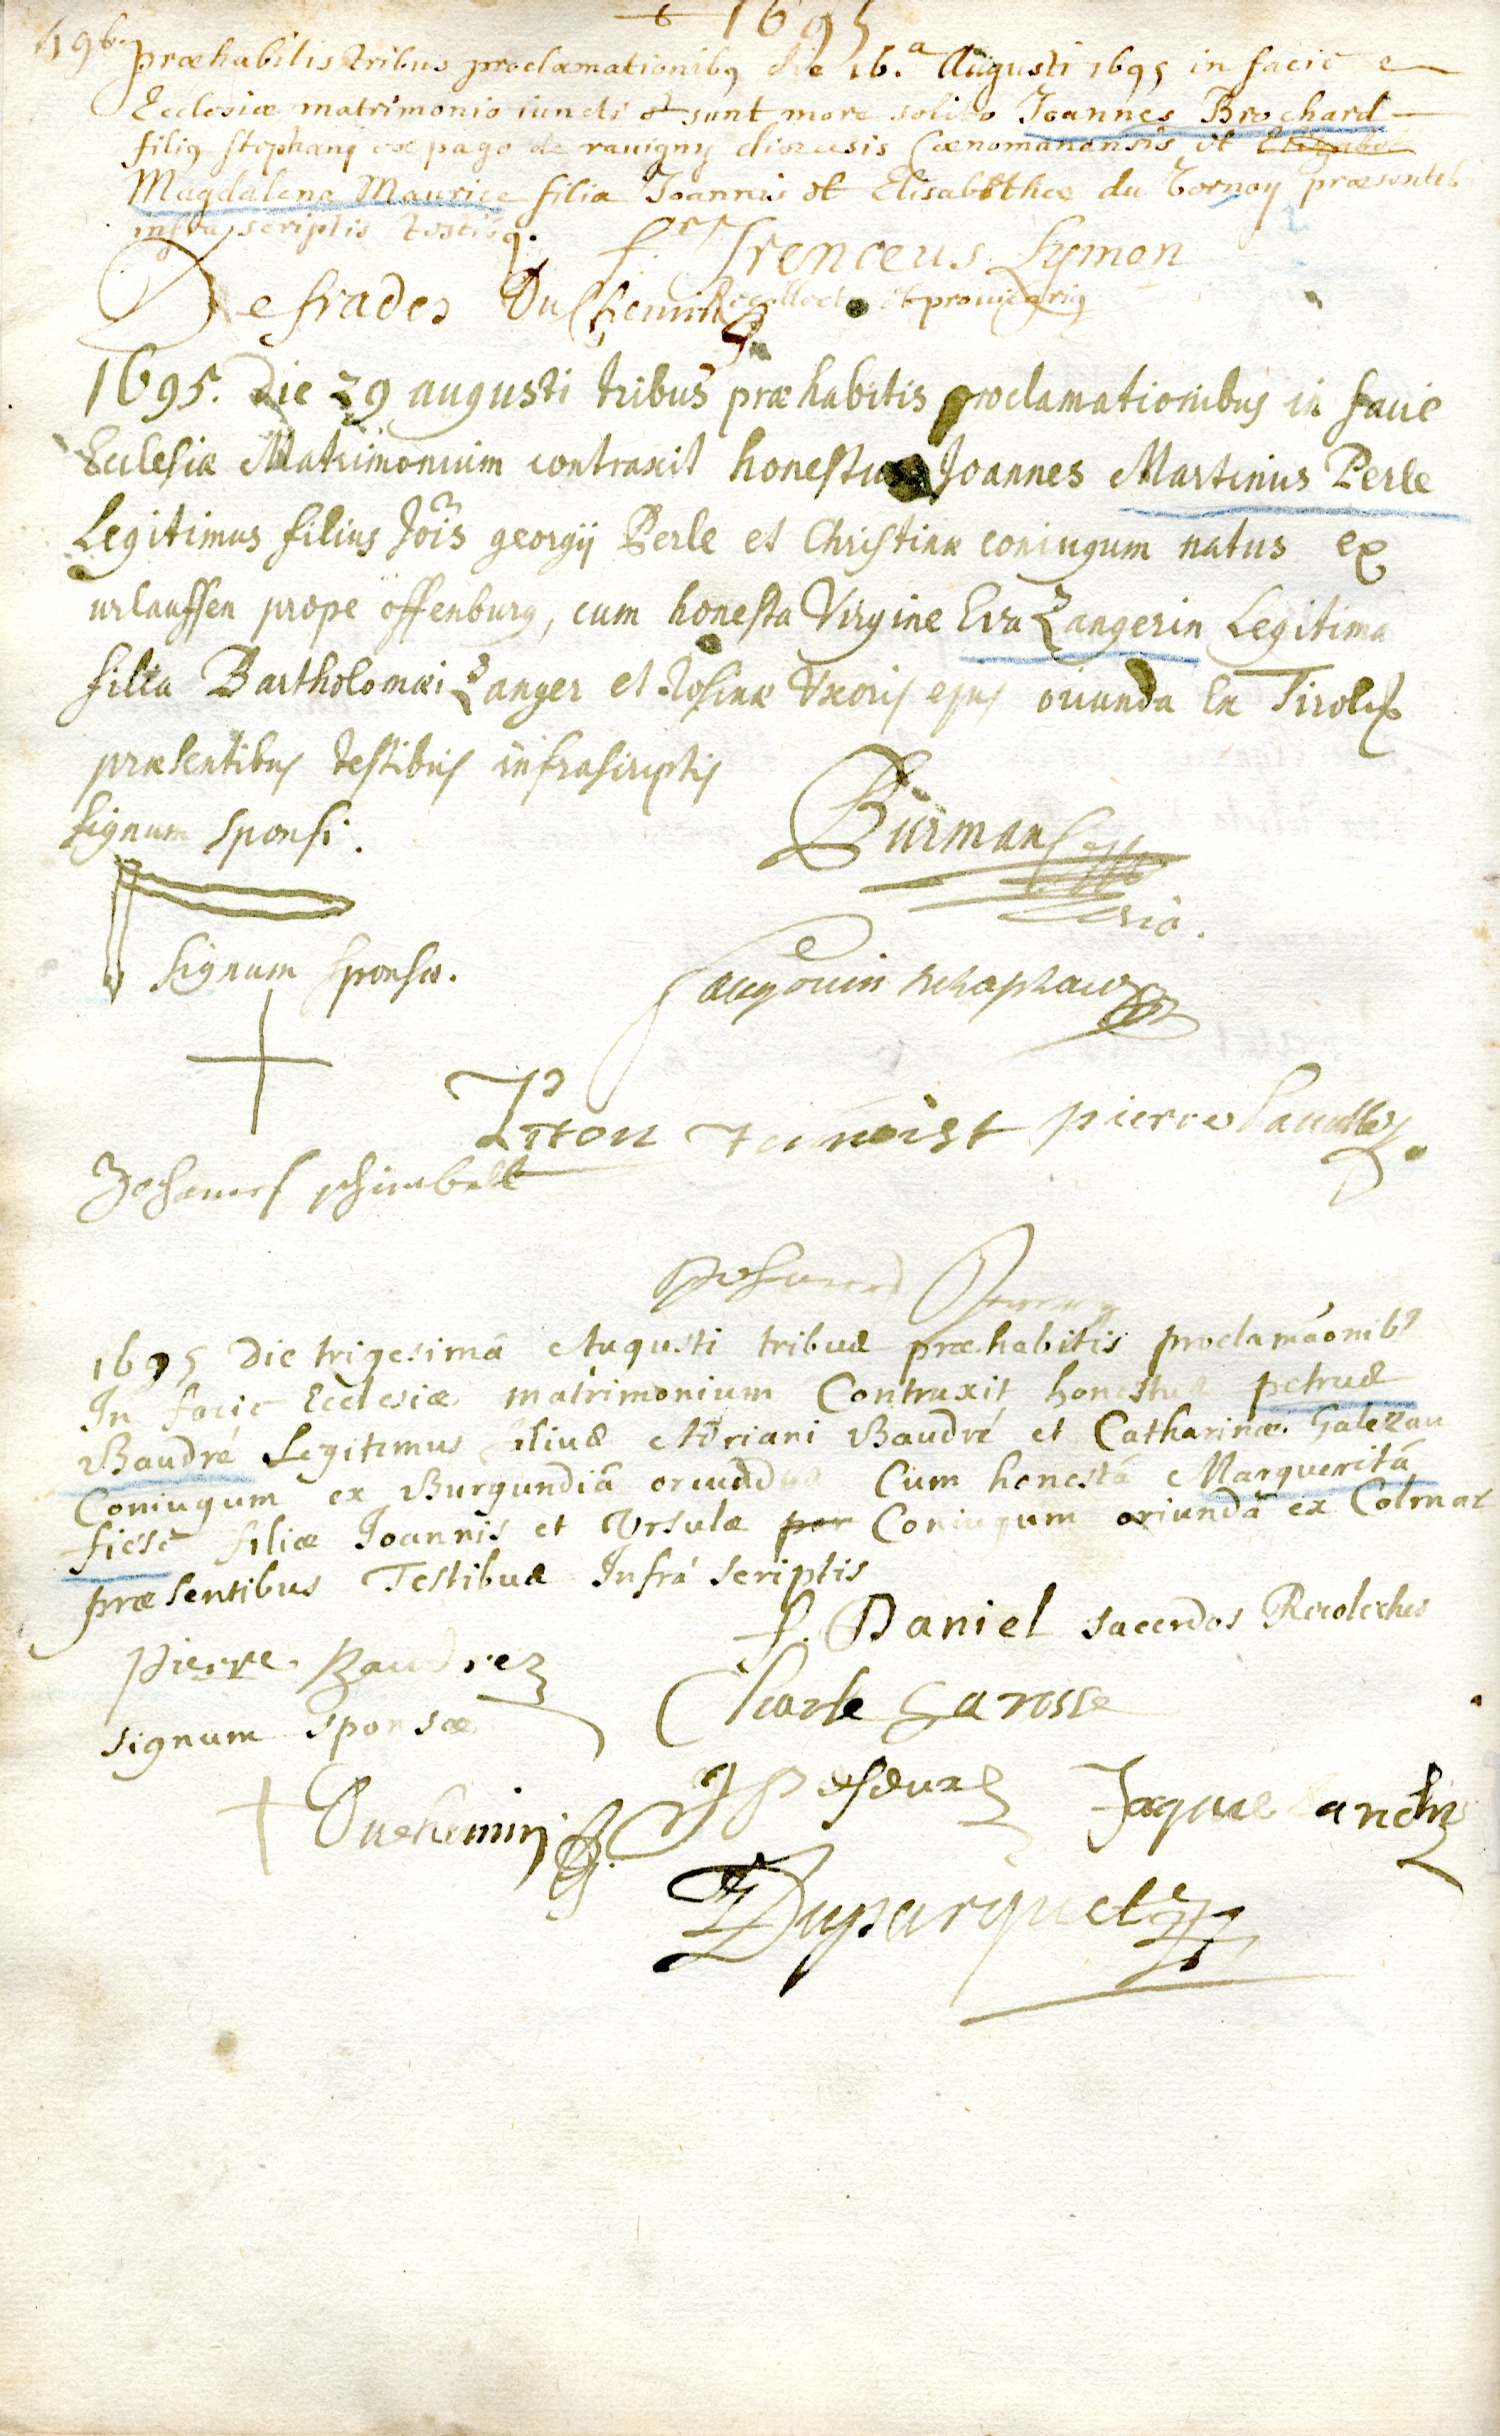 1695
præhabitis tribus proclamationibq die 16.a Augusti 1695 in facie
Ecclesiæ matrimonio iuncti sunt more solito Joannes Brochard
filiq stephanij ex pago de rauigny diocesis Cænomanensis et
Magdalena Maurice filia Joannis et Elisabethæ du Tornoy præsentib
infra scriptis testibq.
f. Irenceus Lymon
Defrades DuChemin Recollect et prouicariq
1695. Die 29 augusti tribus præhabitis proclamationibus in facie
Ecclesiæ Matrimonium contraxit honestus Joannes Martinus Perle
Legitimus filius Jois georgij Perle et Christinæ coniugum natus ex
urlauffen prope offenburg, cum honesta Virgine Eva Zangerin Legitima
filia Bartholomæi Zanger et Rosinæ Uxoris ejus oriunda ex Tirolis
præsentibus testibus infrascriptis
signum sponsi.
Burman
signum sponsæ.
pierre
Johannes
1695 Die trigesimâ Augusti tribus præhabitis proclamãonibq
In facie Ecclesiæ matrimonium Contraxit honestus petrus
Baudré Legitimus filius Adriani Baudré et Catharinæ Galezau
Coniugum ex Burgundiâ oriundus Cum honestâ Margueritâ
fiesè filiæ Joannis et Ursulæ per Coniugum oriundâ ex Colmar
præsentibus Testibus Infrá scriptis
f. Daniel sacerdos Recolectus
Pierre Baudrez
Charle Larosse
signum sponsæ
Duchemin Jaque
Duparquet